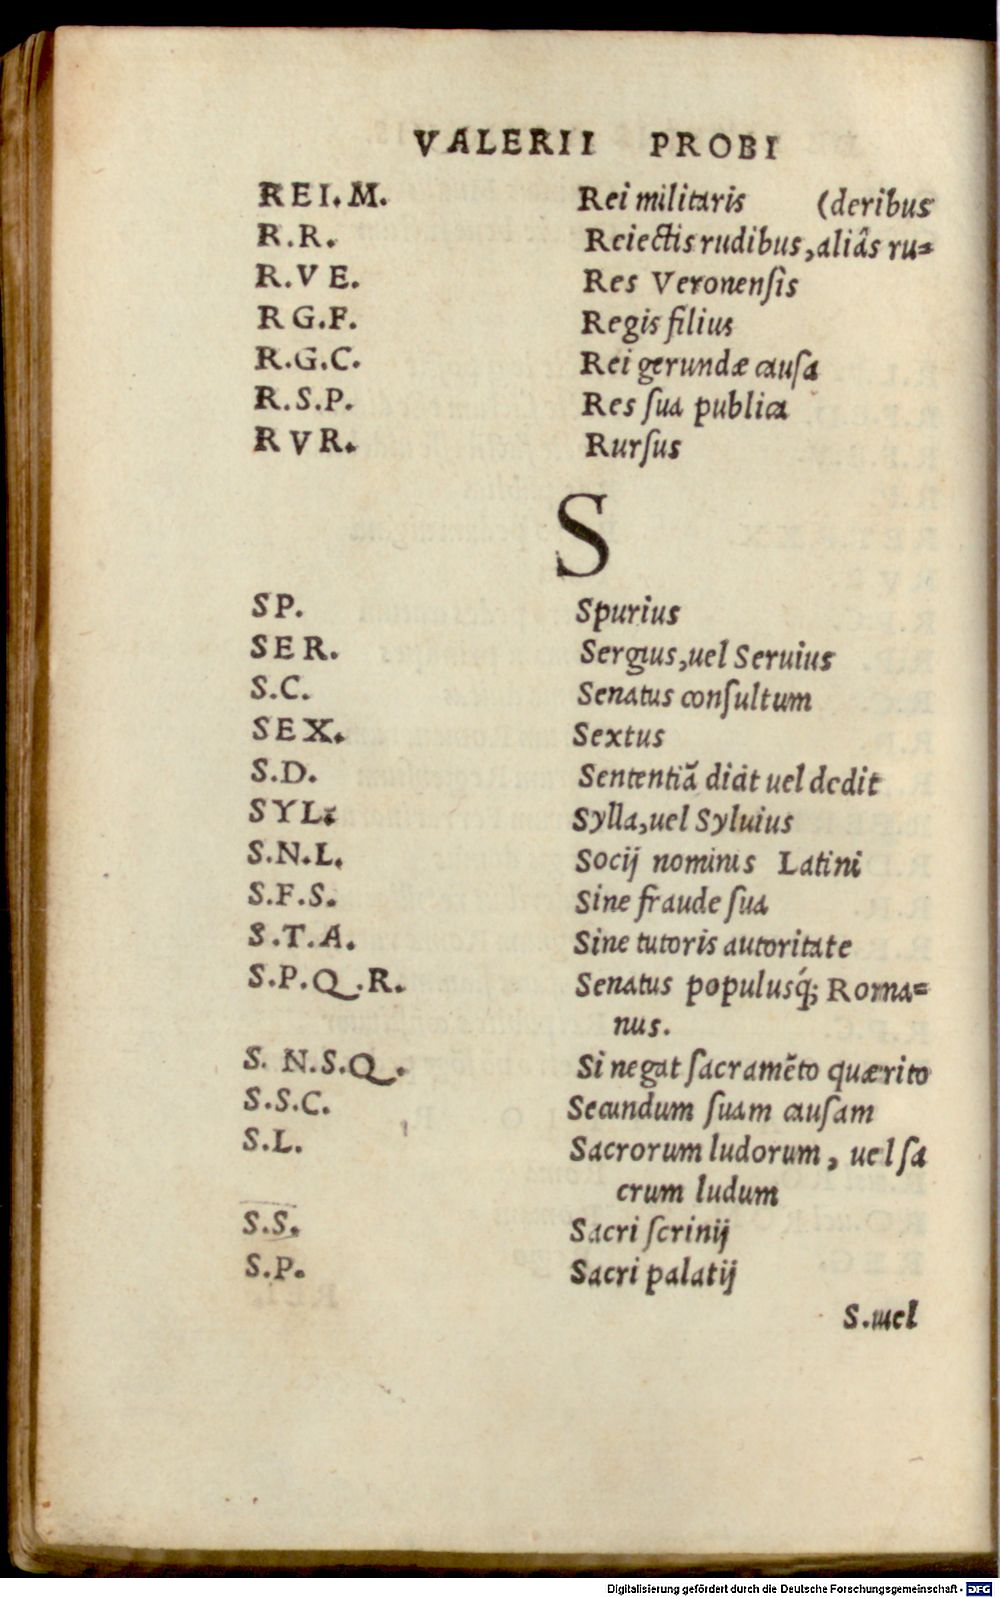 VALERII PROBI
REI.M. Rei militaris (deribus
R.R. Reiectis rudibus, aliâs ru=
R.VE. Res Veronensis
RG.F. Regis filius
R.G.C. Rei gerundæ causa
R.S.P. Res sua publica
RVR. Rursus
S
SP. Spurius
SER. Sergius, uel Seruius
S.C. Senatus consultum
SEX. Sextus
S.D. Sententiā dicit uel dedit
SYL. Sylla, uel Syluius
S.N.L. Socij nominis Latini
S.F.S. Sine fraude sua
S.T.A. Sine tutoris autoritate
S.P.Q.R. Senatus populusq́; Roma=
nus.
S. N.S.Q. Si negat sacramēto quærito
S.S.C. Secundum suam causam
S.L. Sacrorum ludorum, uel sa
crum ludum
S.S. Sacri scrinij
S.P. Sacri palatij
S.uel
Digitalisierung gefördert durch die Deutsche Forschungsgemeinschaft - DFG